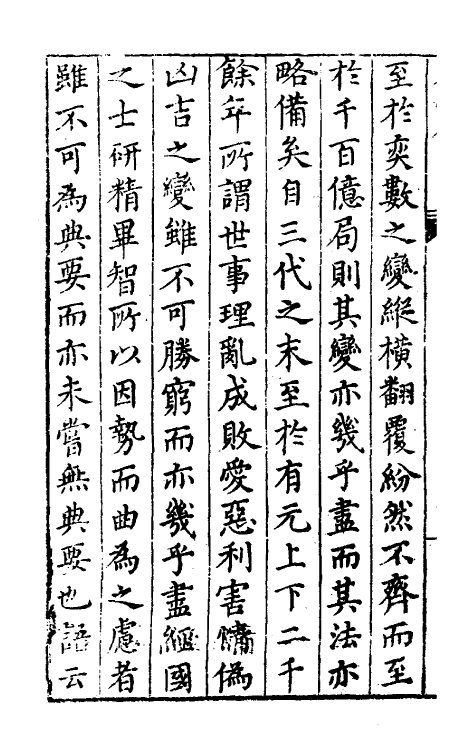 至於奕數之變縱橫翻覆紛然不齊而至
於千百億局則其變亦幾乎盡而其法亦
略備矣自三代之末至於有元上下二千
餘年所謂世事理亂成敗愛惡利害情偽
凶吉之變雖不可勝窮而亦幾乎盡經國
之士研精畢智所以因勢而曲為之慮者
雖不可為典要而亦未嘗無典要也語云